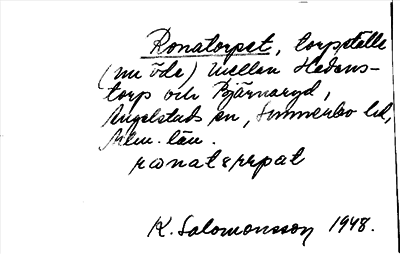 Ronatorpet, torpställe
(nu öde) mellan Hedens-
torp och Bjärnaryd,
Angelstads sn, Sunnerbo hd,
län.
K. Salomonsson 1948.